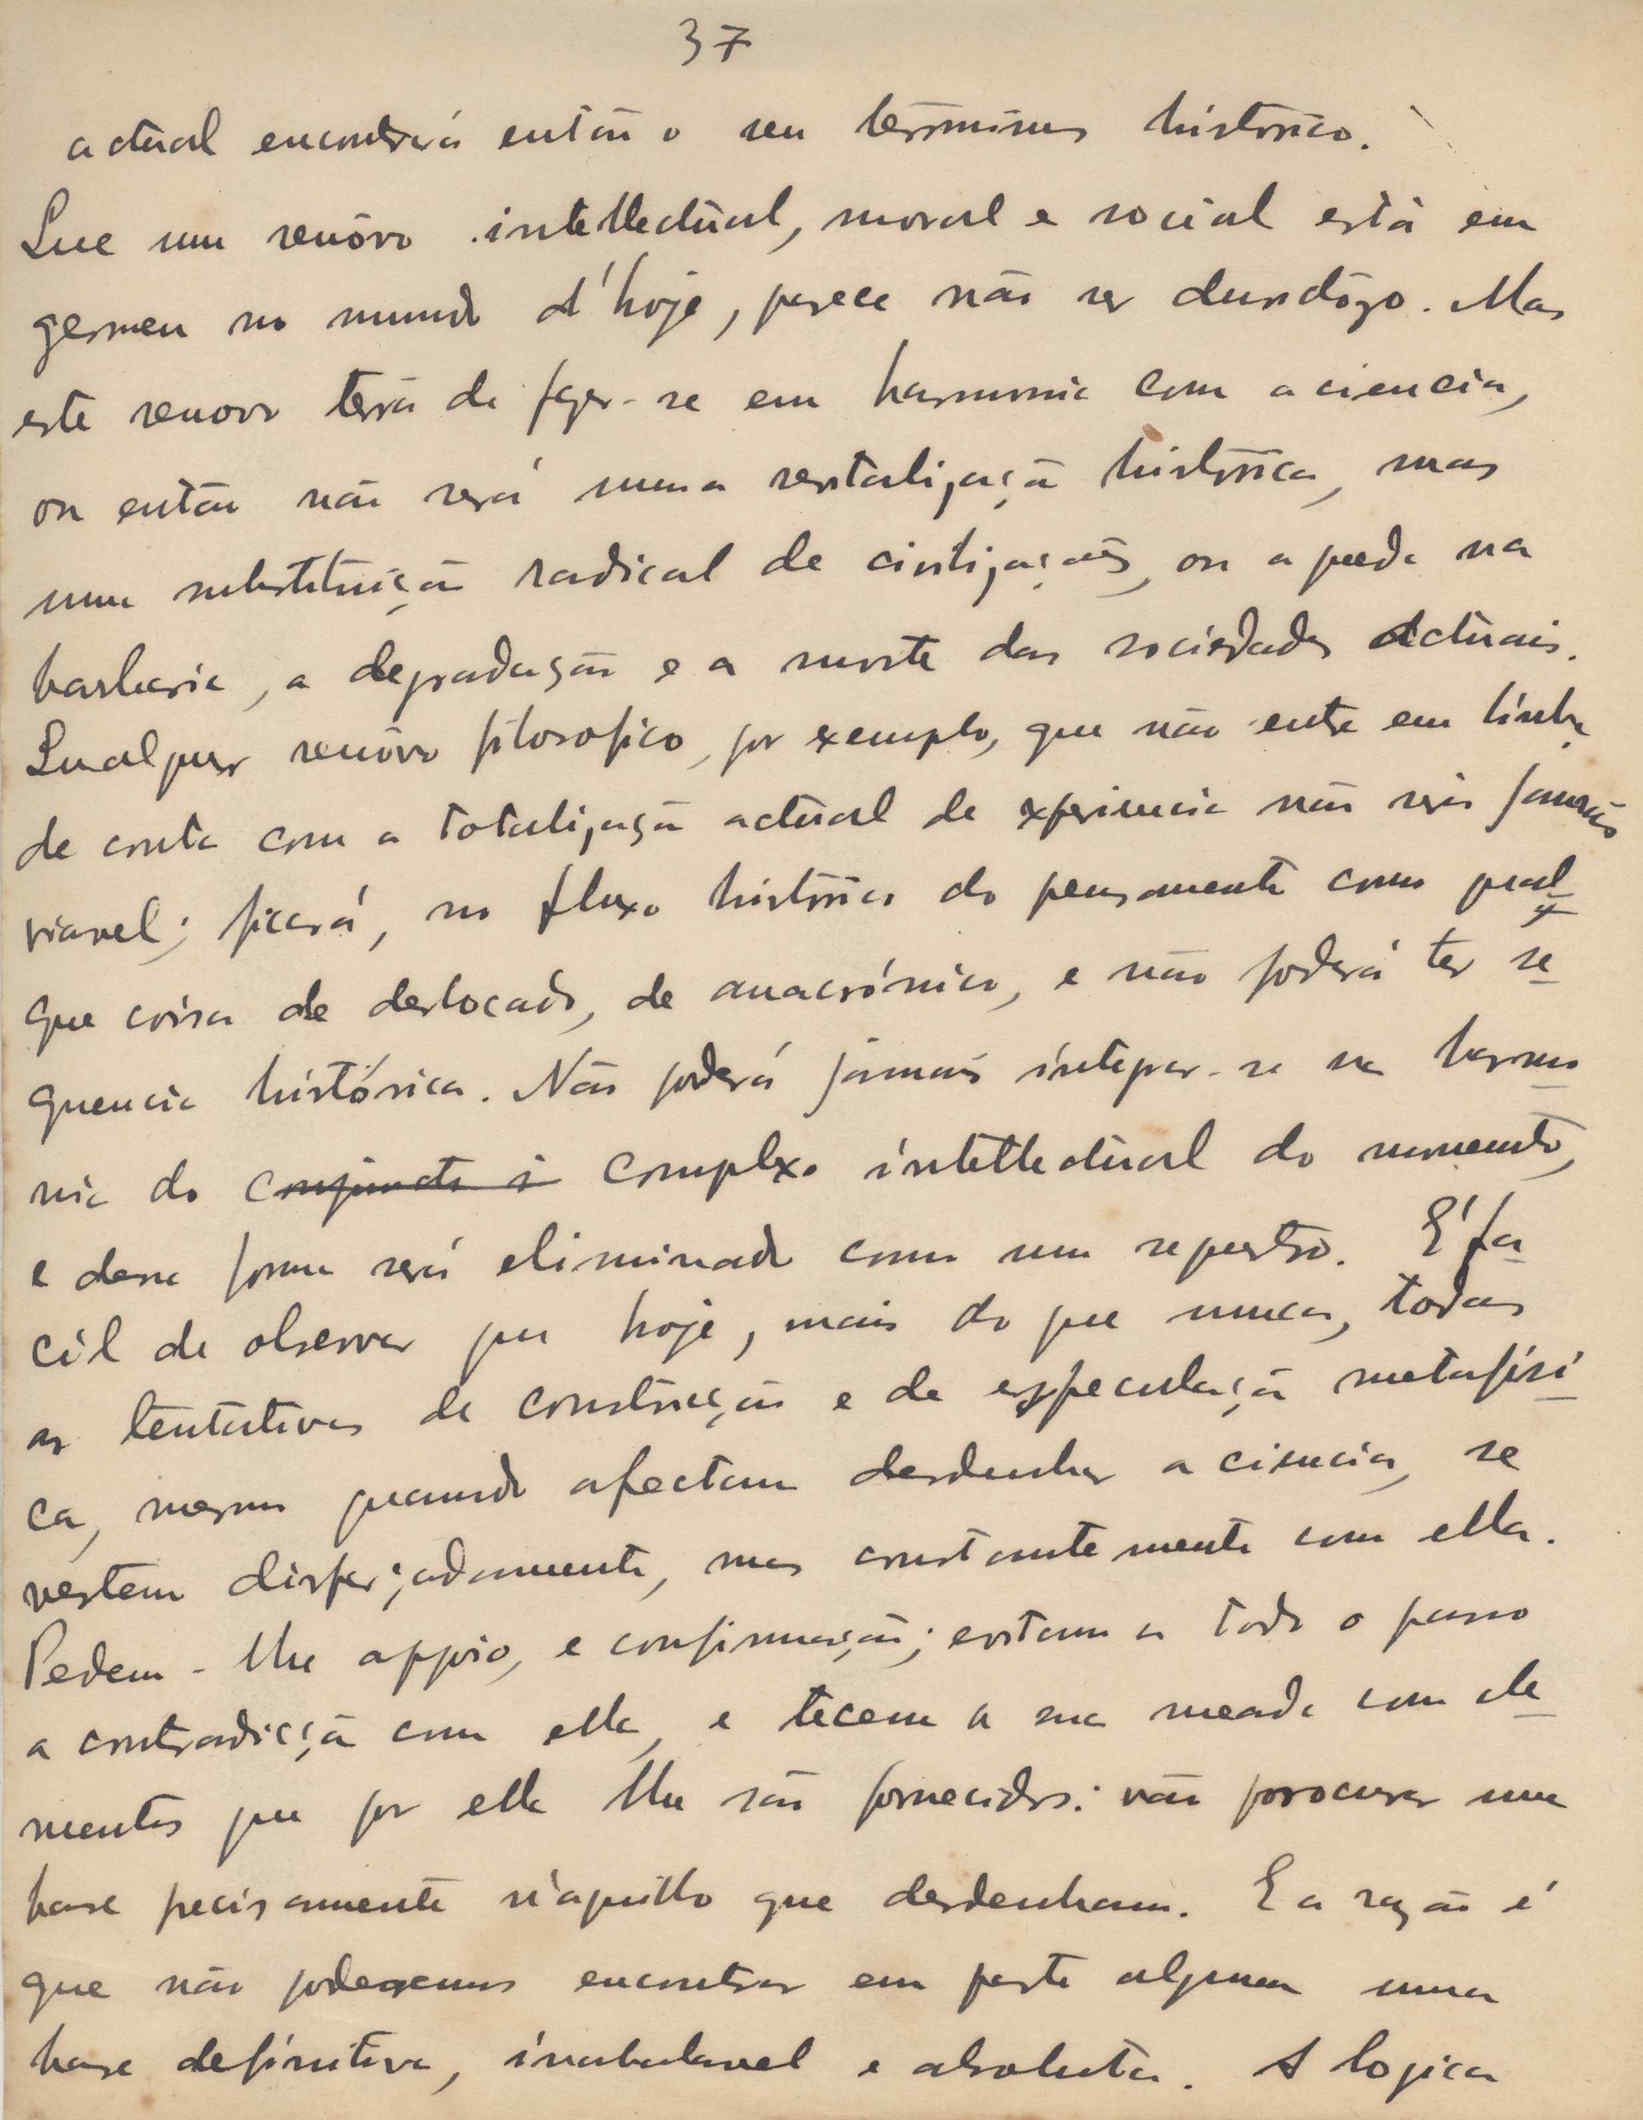 37
actual encontrará então o seu términus histórico.
Que um renôvo intellectual, moral e social está em
germen no mundo d'hoje, parece não ser duvidôso. Mas
este renovo terá de fazer-se em harmonia com a ciencia,
ou então não será uma revitalização histórica, mas
uma substituição radical de civilizações, ou a queda na
barbaria, a degradação e a morte das sociedades actuais.
Qualquer renôvo filosofico, por exemplo, que não entre em linha
de conta com a totalização actual da experiencia não será jamais
viavel; ficará, no fluxo histórico do pensamento como qual
que coisa de deslocado, de anacrónico, e não poderá ter se
quencia histórica. Não poderá jámais integrar-se na harmo
nia do conjuncto i complexo intellectual do momento,
e dessa forma será eliminado como um sequestro. E' fa
cil de observar que hoje, mais do que nunca, todas
as tentativas de construcção e de especulação metafisi
ca, mesmo quando afectam desdenhar a ciencia, se
vestem disfarçadamente, mas constantemente com ella.
Pedem-lhe appoio, e confirmação; evitam a todo o passo
a contradicção com ella, e tecem a sua meada com ele
mentos que por ella lhe são fornecidos: vão procurar uma
base precisamente n'aquillo que desdenham. E a razão é
que não poderemos encontrar em parte alguma uma
base definitiva, inabalavel e absoluta. A logica